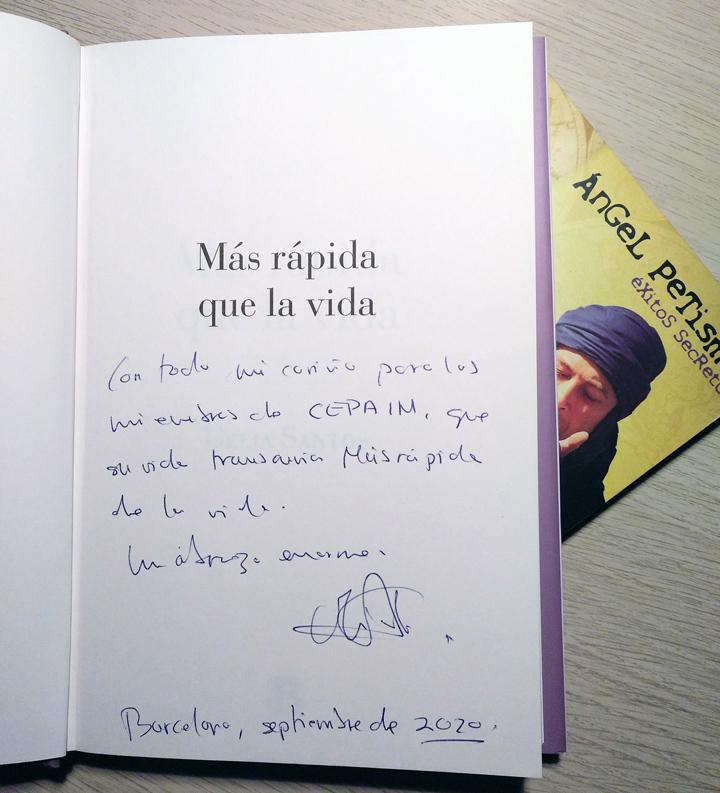 Más rápida
que la vida
Con todo mi cariño para los
miembros de CEPAIM, que
su vida transcurra Más rápida
de la vida.
Un abrazo enorme.
Barcelona, septiembre de 2020.
CELIA SANTOS
ÁnGeL PeTisM
éXitoS SecReto